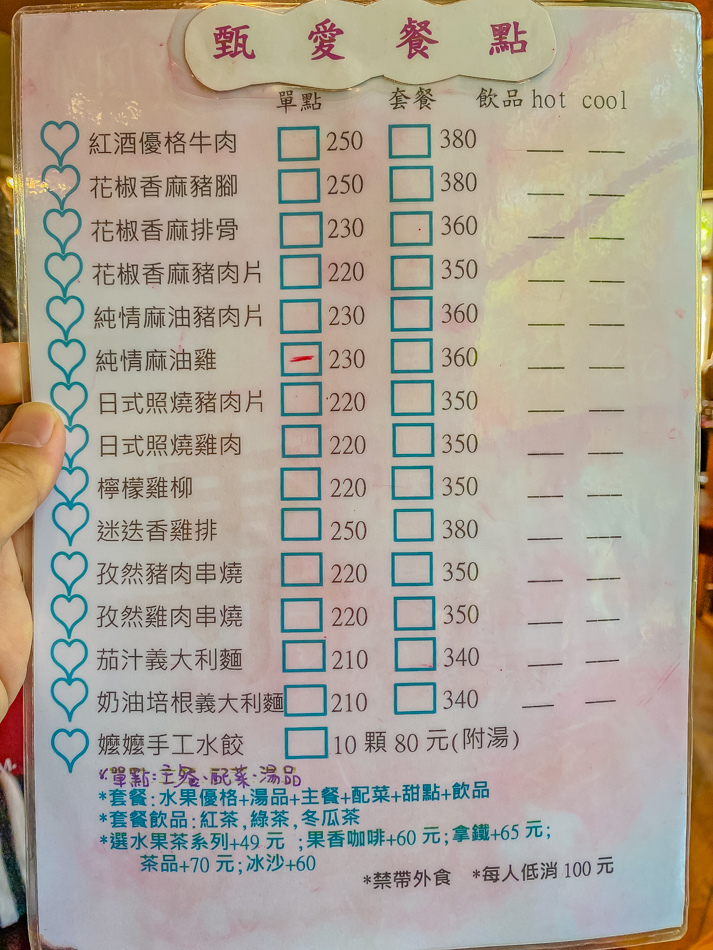 甄愛餐點
單點 套餐 飲品 hot cool
紅酒優格牛肉 250 380
花椒香麻豬腳 250 380
花椒香麻排骨 230 360
花椒香麻豬肉片 220 350
純情麻油豬肉片 230 360
純情麻油雞 230 360
日式照燒豬肉片 220 350
日式照燒雞肉 220 350
檸檬雞柳 220 350
迷迭香雞排 250 380
孜然豬肉串燒 220 350
孜然雞肉串燒 220 350
茄汁義大利麵 210 340
奶油培根義大利麵 210 340
嬤嬤手工水餃 10 顆 80 元(附湯)
*單點:主餐、配菜、湯品
*套餐:水果優格+湯品+主餐+配菜+甜點+飲品
*套餐飲品:紅茶,綠茶,冬瓜茶
*選水果茶系列+49 元 ;果香咖啡+60 元;拿鐵+65 元;
茶品+70 元;冰沙+60
*禁帶外食 *每人低消 100 元